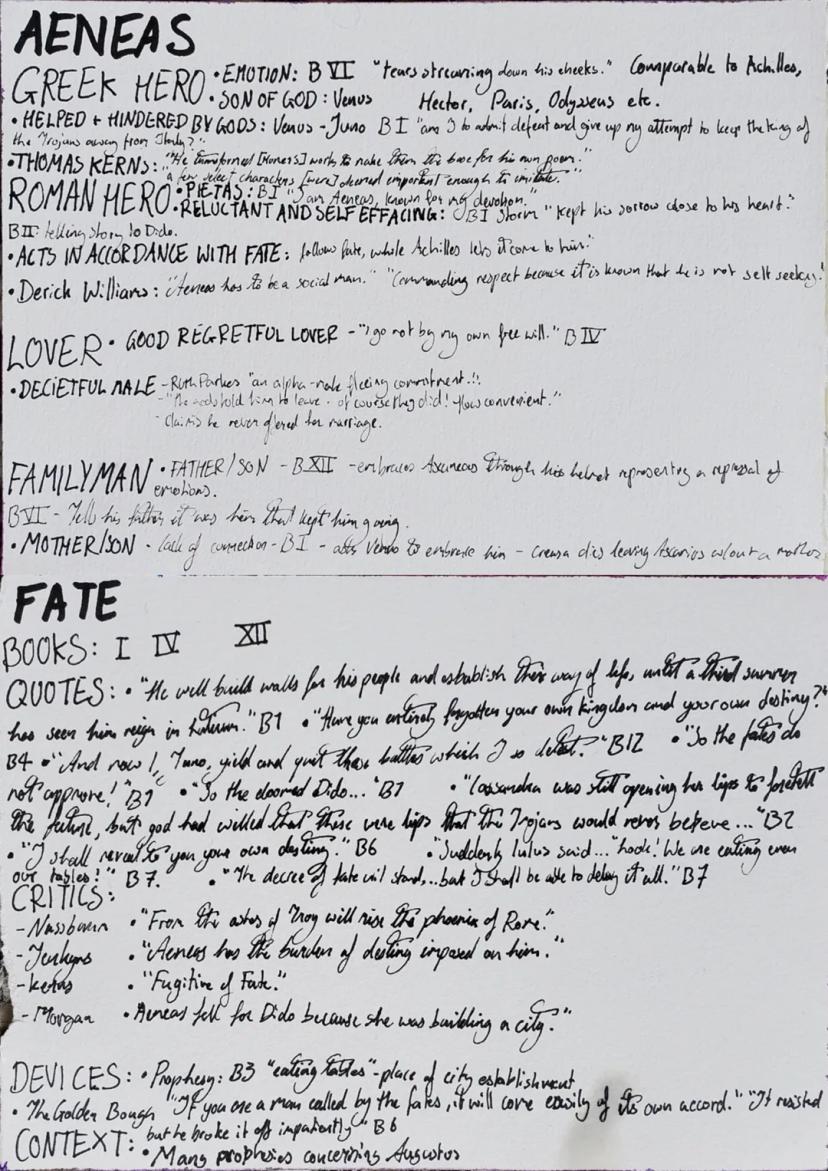 AENEAS
GREEK HERO • EMOTION: B VI "tears streaming down his cheeks." Comparable to Achilles,
• SON OF GOD: Venus Hector, Paris, Odysseus etc.
• HELPED + HINDERED BY GODS: Venus - Juno B I "am I to admit defeat and give up my attempt to keep the king of
the Trojans away from Italy?"
• THOMAS KERNS: "He transformed [Homer's] works to make them the base for his own poem."
"a few select characters [were] deemed important enough to imitate."
ROMAN HERO • PIETAS: B I "I am Aeneas, known for my devotion."
• RELUCTANT AND SELF EFFACING: B I storm "kept his sorrow close to his heart."
B II: telling story to Dido.
• ACTS IN ACCORDANCE WITH FATE: follows fate, while Achilles lets it come to him."
• Derick Williams: "Aeneas has to be a social man." "Commanding respect because it is known that he is not self seeking."
LOVER • GOOD REGRETFUL LOVER - "I go not by my own free will." B IV
• DECIETFUL MALE - Ruth Parkes "an alpha-male fleeing commitment."
- "The gods told him to leave - of course they did! How convenient."
- Claims he never offered her marriage.
FAMILY MAN • FATHER/SON - B XII - embraces Ascanius through his helmet representing a repressal of
emotions.
B VI - Tells his father it was him that kept him going.
• MOTHER/SON - lack of connection - B I - asks Venus to embrace him - Creusa dies leaving Ascanius w/out a mother
FATE
BOOKS: I IV XII
QUOTES: • "He will build walls for his people and establish their way of life, until a third summer
has seen him reign in Latium." B1 • "Have you entirely forgotten your own kingdom and your own destiny?"
B4 • "And now I, Juno, yield and quit these battles which I so detest." B12 • "So the fates do
not approve!" B1 • "So the doomed Dido..." B1 • "Cassandra was still opening her lips to foretell
the future, but god had willed that these were lips that the Trojans would never believe..." B2
• "I shall reveal to you your own destiny." B6 • "Suddenly Iulus said... "Look! We are eating even
our tables!" B7. • "The decree of fate will stand...but I shall be able to delay it all." B7
CRITICS:
- Nussbaum • "From the ashes of Troy will rise the phoenix of Rome."
- Jenkyns • "Aeneas has the burden of destiny imposed on him."
• "Fugitive of Fate."
- Morgan • Aeneas fell for Dido because she was building a city."
DEVICES: • Prophesy: B3 "eating tables" - place of city establishment
• The Golden Bough "If you are a man called by the fates, it will come easily of its own accord." "It resisted
but he broke it off impatiently" B6
CONTEXT: • Many prophesies concerning Augustus